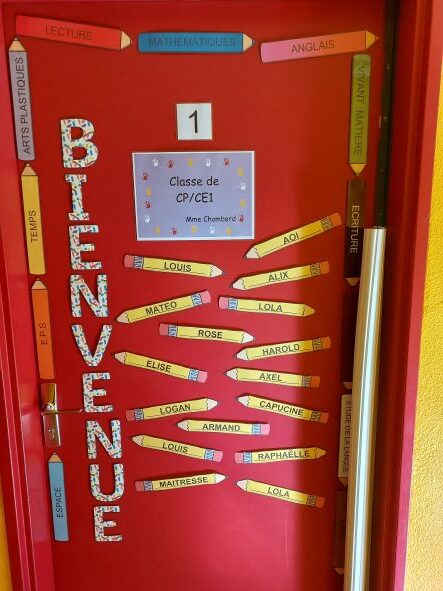 LECTURE
MATHEMATIQUES
ANGLAIS
ARTS PLASTIQUES
TEMPS
E.P.S
ESPACE
VIVANT MATIERE
ECRITURE
ETUDE DE LA LANGUE
BIENVENUE
1
Classe de
CP/CE1
Mme Chambard
AOI
LOUIS
ALIX
MATEO
LOLA
ROSE
HAROLD
ELISE
AXEL
LOGAN
CAPUCINE
ARMAND
LOUIS
RAPHAËLLE
MAITRESSE
LOLA